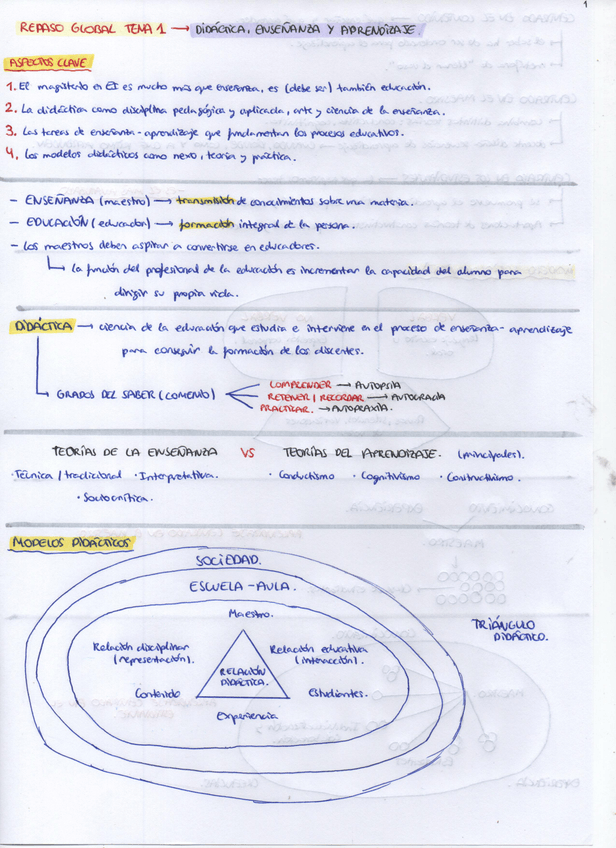 1
REPASO GLOBAL TEMA 1 → DIDÁCTICA, ENSEÑANZA Y APRENDIZAJE
ASPECTOS CLAVE
1. El magisterio en EI es mucho más que enseñanza, es (debe ser) también educación.
2. La didáctica como disciplina pedagógica y aplicada, arte y ciencia de la enseñanza.
3. Las tareas de enseñanza-aprendizaje que fundamentan los procesos educativos.
4. Los modelos didácticos como nexo, teoría y práctica.
- ENSEÑANZA (maestro) → transmisión de conocimientos sobre una materia.
- EDUCACIÓN (educador) → formación integral de la persona.
- Los maestros deben aspirar a convertirse en educadores.
↳ la función del profesional de la educación es incrementar la capacidad del alumno para
dirigir su propia vida.
DIDÁCTICA → ciencia de la educación que estudia e interviene en el proceso de enseñanza-aprendizaje
para conseguir la formación de los discentes.
COMPRENDER → AUTOPSIA
↳ GRADOS DEL SABER (COMENIO) RETENER / RECORDAR → AUTOCRACIA
PRACTICAR. → AUTOPRAXIA.
TEORÍAS DE LA ENSEÑANZA VS TEORÍAS DEL APRENDIZAJE. (principales).
· Técnica / tradicional · Interpretativa. · Conductismo · Cognitivismo · Constructivismo.
· Sociocrítica.
MODELOS DIDÁCTICOS
SOCIEDAD.
ESCUELA-AULA.
Maestro.
TRIÁNGULO
DIDÁCTICO.
Relación disciplinar
(representación).
Relación educativa
(interacción).
RELACIÓN
DIDÁCTICA.
Contenido
Estudiantes.
Experiencia